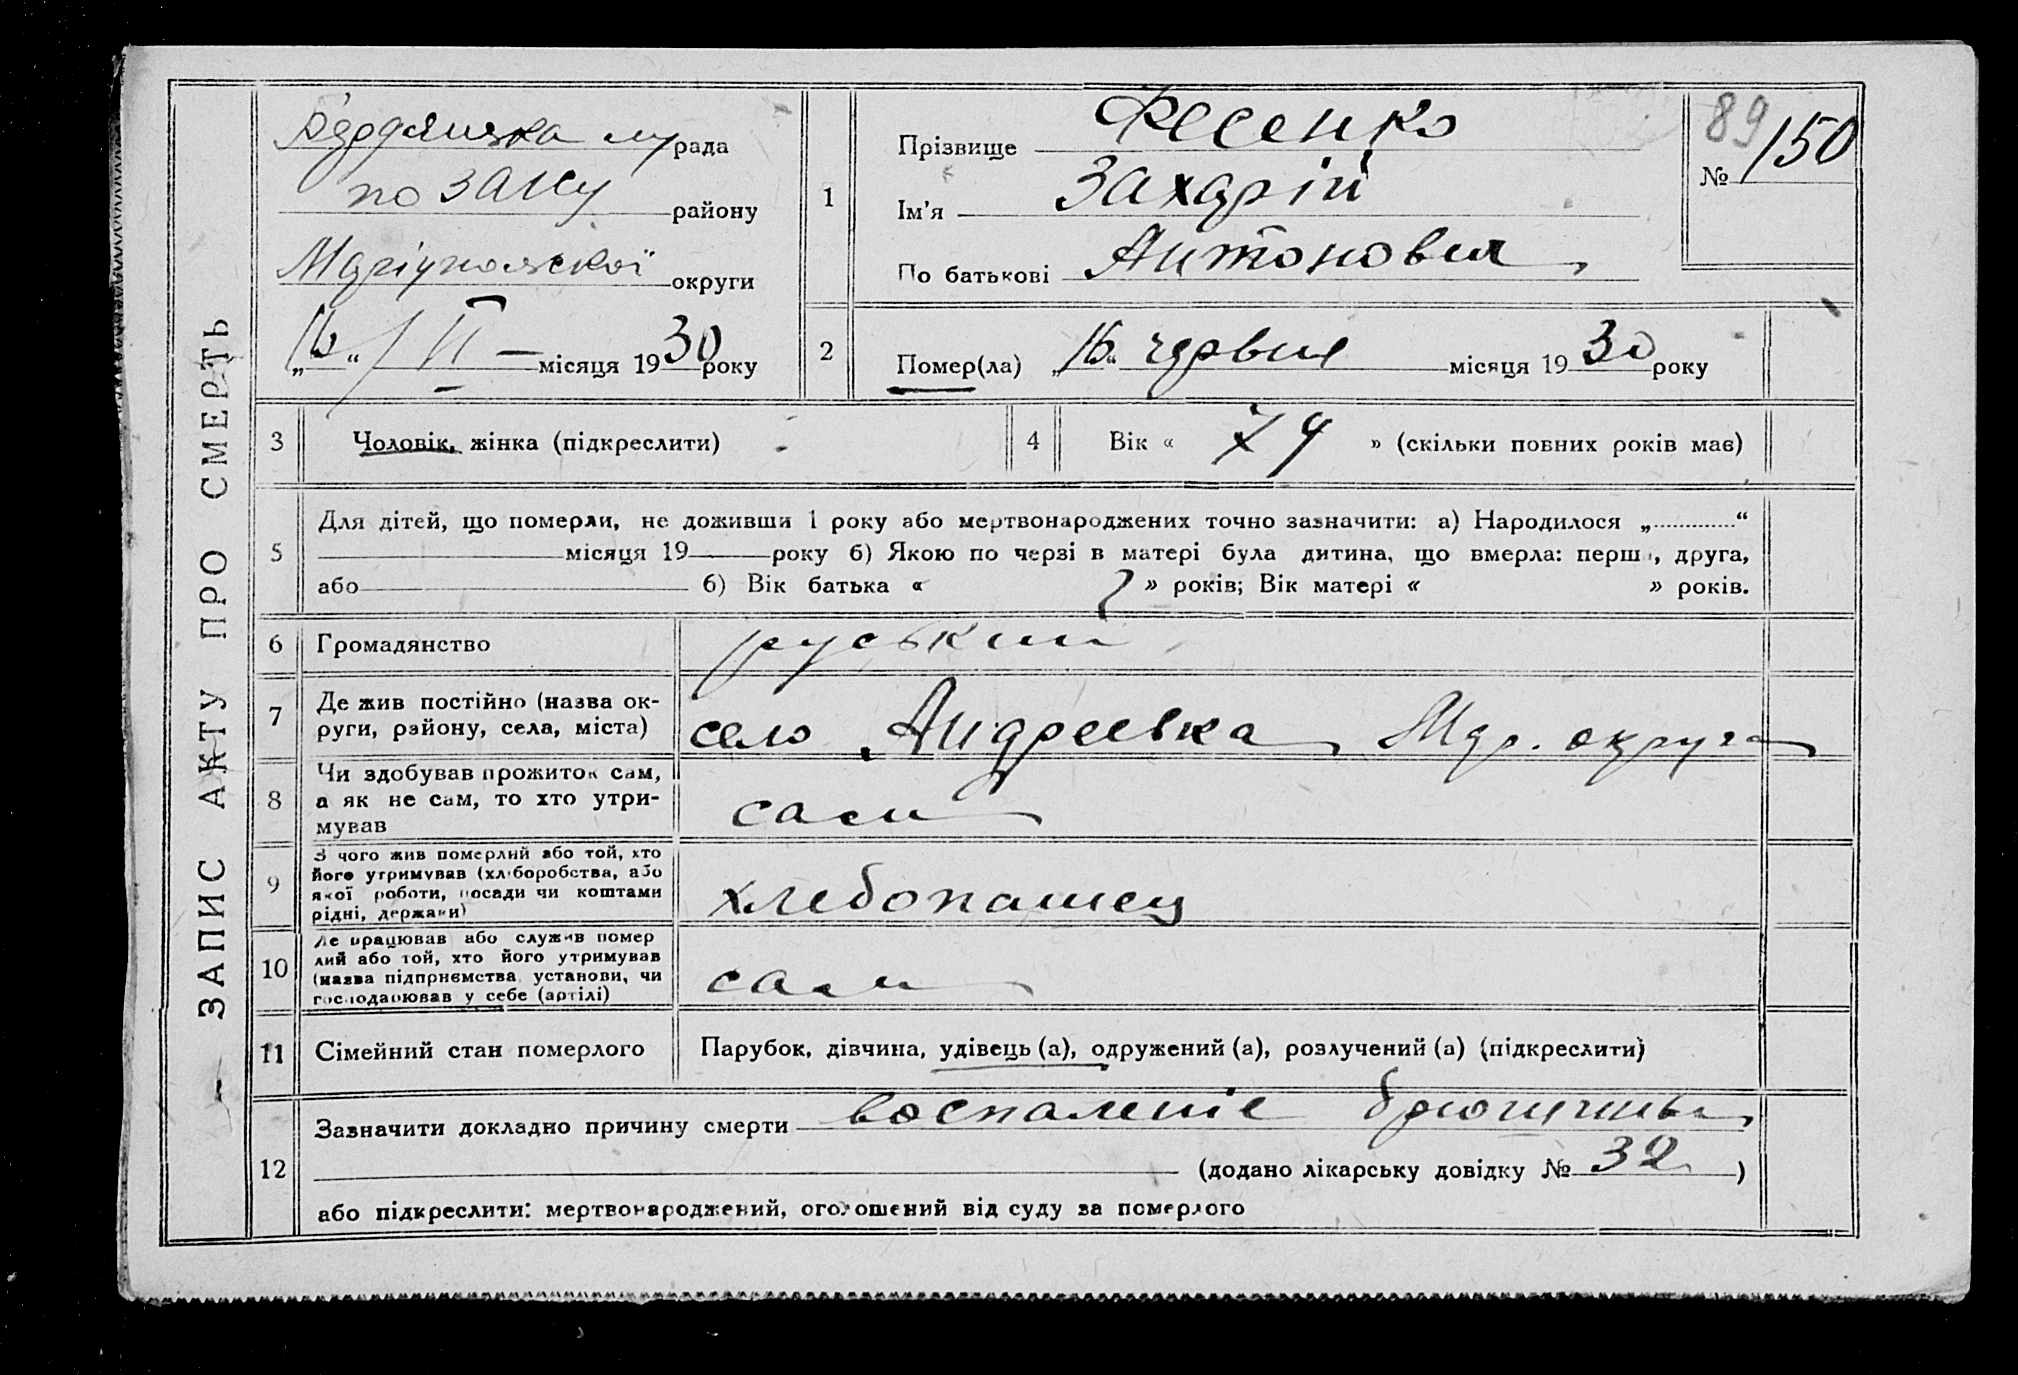 ЗАПИС АКТУ ПРО СМЕРТЬ
Бердянська рада
по загсу району
Маріупольскої округи
„16“ VI місяця 1930 року
1
Прізвище Фесенко
Ім'я Захарій
По батькові Антонович
89
№ 150
2
Помер(ла) „16“ червня місяця 1930 року
3 Чоловік, жінка (підкреслити)
4 Вік « 74 » (скільки повних років має)
5
Для дітей, що померли, не доживши 1 року або мертвонароджених точно зазначити: а) Народилося „ “
місяця 19 року б) Якою по черзі в матері була дитина, що вмерла: перша, друга,
або б) Вік батька « » років; Вік матері « » років.
6 Громадянство руський
7 Де жив постійно (назва ок-
руги, району, села, міста) село Андреевка Мар. округа
8 Чи здобував прожиток сам,
а як не сам, то хто утри-
мував сам
9 З чого жив померлий або той, хто
його утримував (хліборобства, або
якої роботи, посади чи коштами
рідні, держави) хлебопашец
10 Де працював або служив помер
лий або той, хто його утримував
(назва підприємства, установи, чи
господарював у себе (артілі) сам
11 Сімейний стан померлого Парубок, дівчина, удівець (а), одружений (а), розлучений (а) (підкреслити)
12
Зазначити докладно причину смерти воспаление брюшины
(додано лікарську довідку № 32)
або підкреслити: мертвонароджений, оголошений від суду за померлого